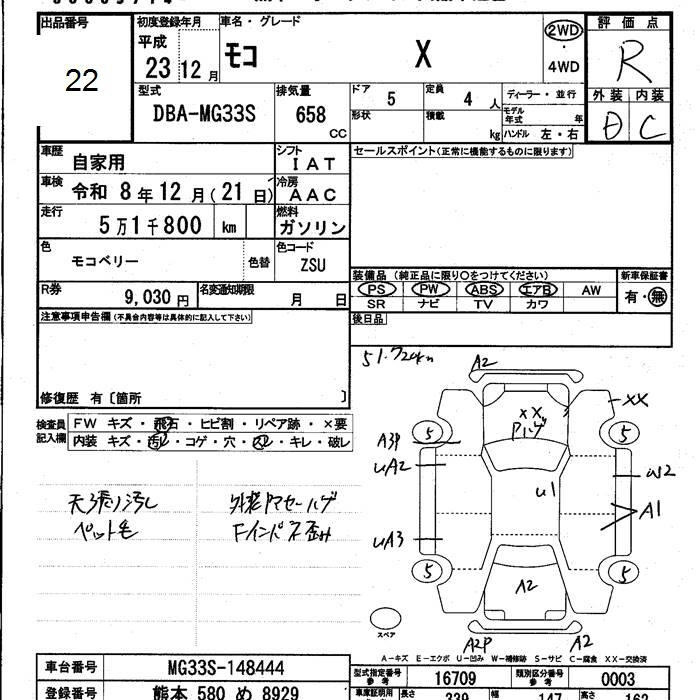 出品番号
22
初度登録年月
平成
23 12 月
車名・グレード
モコ X
2WD
・
4WD
評価点
R
外装 内装
D C
型式
DBA-MG33S
排気量
658
CC
ドア 5
定員 4 人
ディーラー・並行
形状
積載
kg
モデル年式 年
ハンドル 左・右
車歴
自家用
シフト
IAT
セールスポイント(正常に機能するものに限ります)
車検
令和 8 年 12 月(21 日)
冷房
AAC
走行
5 万 1 千 800 km
燃料
ガソリン
色
モコベリー
色替
色コード
ZSU
装備品 (純正品に限り○をつけてください)
新車保証書
PS PW ABS エアB AW
有・無
SR ナビ TV カワ
R券
9,030 円
名変通知期限
月 日
後日品
注意事項申告欄(不具合内容等は具体的に記入して下さい)
修復歴 有〔箇所 〕
検査員記入欄
FW キズ・飛石・ヒビ割・リペア跡・×要
内装 キズ・汚レ・コゲ・穴・スレ・キレ・破レ
天張り汚し
ペット毛
51,720km
A2
XX
XX
5
5
A3P
UA2
W2
U1
A1
UA3
5
5
A2
A2P
A2
スペア
A-キズ E-エクボ U-凹み W-補修跡 S-サビ C-腐食 XX-交換済
車台番号
MG33S-148444
登録番号
熊本 580 め 8929
型式指定番号
参考
16709
類別区分番号
参考
0003
車庫証明用
参考
長さ
339
幅
147
高さ
162